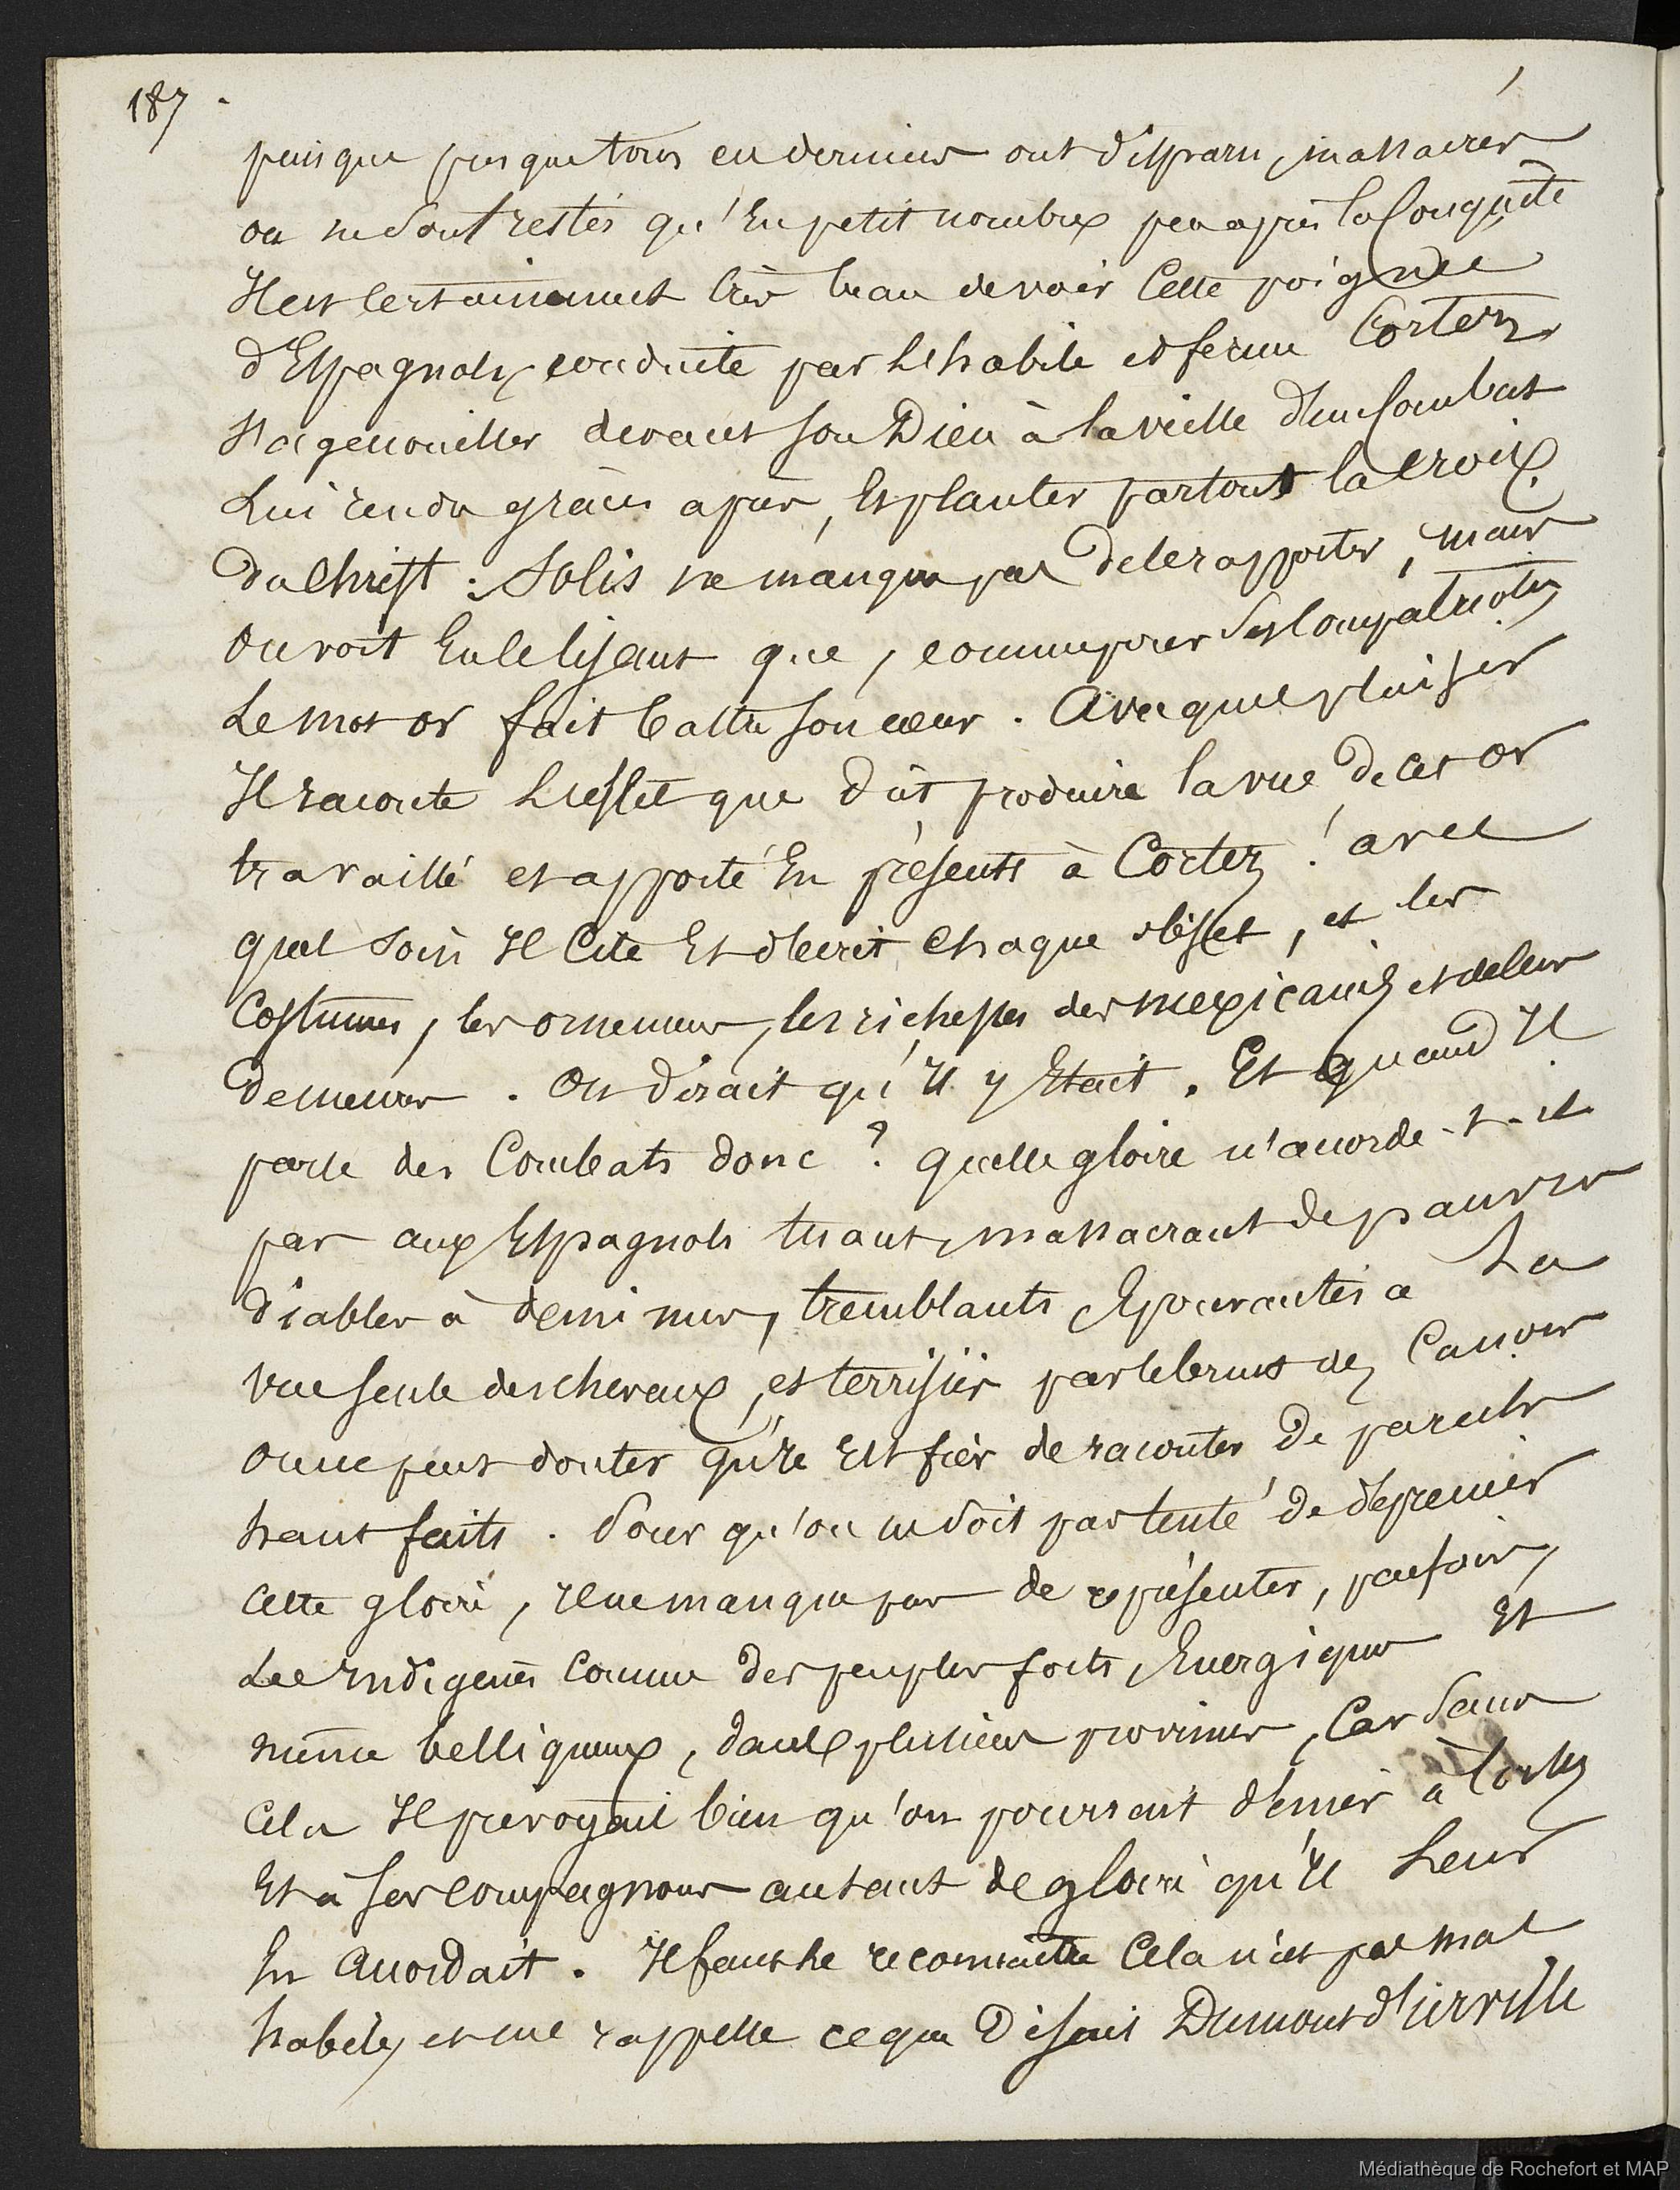 187
puisque presque tous ces derniers ont disparu, massacrés
ou ne sont restés qu'en petit nombre peu après la Conquête
Il est certainement très beau de voir cette poignée
d'Espagnols, conduite par l'habile et ferme Cortez
s'agenouiller devant son Dieu à la veille d'un Combat
Lui rendre grâces après, Et planter partout la croix
du Christ. Solis ne manque pas de le rapporter, mais
on voit En le lisant que, comme pour ses Compatriotes
Le mot or fait battre son cœur. Avec quel plaisir
Il raconte L'effet que dût produire la vue de cet or
travaillé et apporté En présents à Cortez! avec
quel soin Il Cite Et décrit Chaque objet, et les
Costumes, les ornemens, les richesses des mexicains et de leurs
demeures. On dirait qu'Il y Etait. Et quand Il
parle des Combats donc? quelle gloire n'accorde-t-il
pas aux Espagnols tuant, massacrant de pauvres
diables à demi nus, tremblants Epouvantés a La
vue seule des chevaux, et terrifiés par le bruit des Canons
on ne peut douter qu'Il Est fier de raconter de pareils
haut faits. Pour qu'on ne soit pas tenté de déprécier
cette gloire, Il ne manque pas de représenter, parfois,
Les Indigènes Comme des peuples forts, Energiques Et
même belliqueux, dans plusieurs provinces, Car Sans
cela Il prévoyait bien qu'on pourrait dénier à Cortez
Et à ses compagnons autant de gloire qu'Il Leur
En accordait. Il faut le reconnaître Cela n'est pas mal
habile, et me rappelle ce que Disait Dumont d'Urville
Médiathèque de Rochefort et MAP